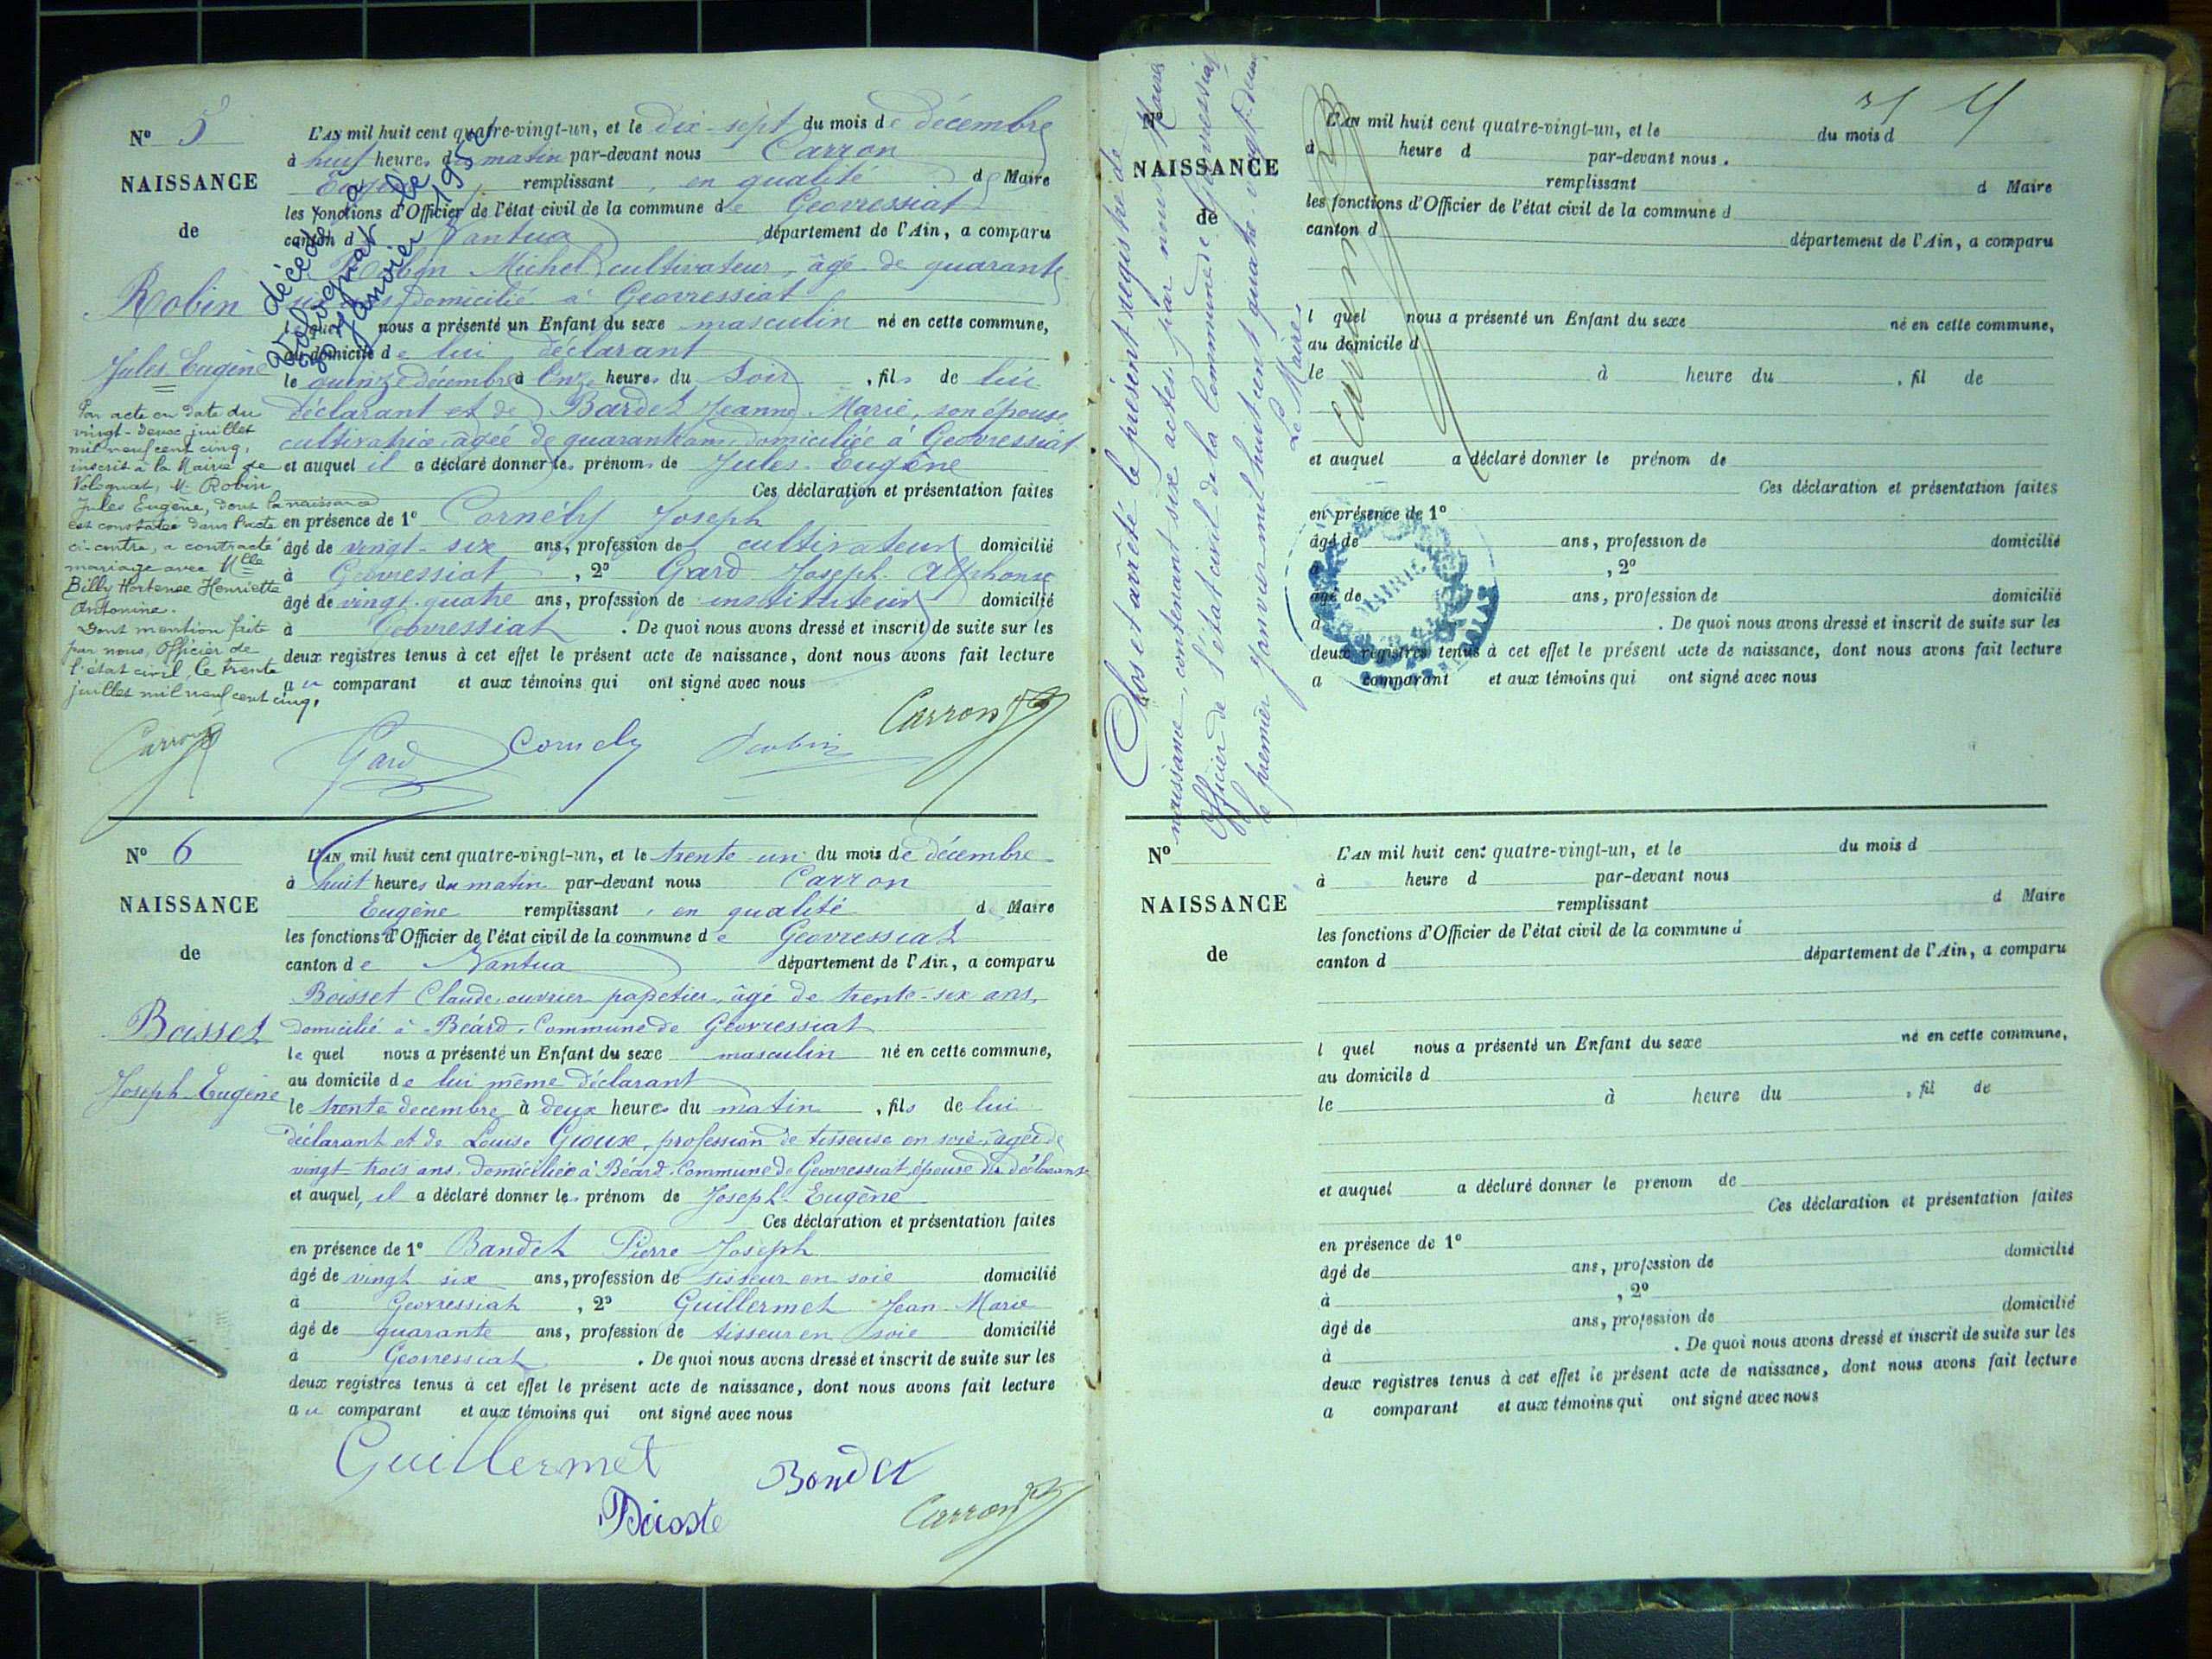 N° 5
NAISSANCE
de
Robin
Jules Eugène
Par acte en date du
vingt-deux juillet
mil neuf cent cinq,
inscrit à la Mairie de
Volognat, M. Robin
Jules Eugène, dont la naissance
est constatée dans l'acte
ci-contre, a contracté
mariage avec Mlle
Billy Hortense Henriette
Antonine.
Dont mention faite
par nous, Officier de
l'état civil, le trente
juillet mil neuf cent cinq.
Carron
décédé à
Volognat le
janvier
L'AN mil huit cent quatre-vingt-un, et le dix-sept du mois de décembre
à huit heures du matin par-devant nous Carron
Eugène remplissant, en qualité de Maire
les fonctions d'Officier de l'état civil de la commune de Geovressiat
canton d Nantua département de l'Ain, a comparu
Robin Michel cultivateur, âgé de quarante
six ans domicilié à Geovressiat
lequel nous a présenté un Enfant du sexe masculin né en cette commune,
au domicile de lui déclarant
le quinze décembre à onze heures du soir, fils de lui
déclarant et de Bardet Jeanne Marie, son épouse,
cultivatrice, âgée de quarante ans, domiciliée à Geovressiat
et auquel il a déclaré donner les prénoms de Jules Eugène
Ces déclaration et présentation faites
en présence de 1° Cornély Joseph
âgé de vingt-six ans, profession de cultivateur domicilié
à Geovressiat, 2° Gard Joseph Alphonse
âgé de vingt-quatre ans, profession de instituteur domicilié
à Geovressiat. De quoi nous avons dressé et inscrit de suite sur les
deux registres tenus à cet effet le présent acte de naissance, dont nous avons fait lecture
au comparant et aux témoins qui ont signé avec nous
Gard Cornely Robin Carron
N° 6
NAISSANCE
de
Boisset
Joseph Eugène
L'AN mil huit cent quatre-vingt-un, et le trente-un du mois de décembre
à huit heures du matin par-devant nous Carron
Eugène remplissant, en qualité de Maire
les fonctions d'Officier de l'état civil de la commune de Geovressiat
canton de Nantua département de l'Ain, a comparu
Boisset Claude, ouvrier papetier, âgé de trente-six ans,
domicilié à Béard, Commune de Geovressiat
lequel nous a présenté un Enfant du sexe masculin né en cette commune,
au domicile de lui même déclarant
le trente decembre à deux heures du matin, fils de lui
déclarant et de Louise Gioux, profession de tisseuse en soie, âgée de
vingt trois ans, domiciliée à Béard, Commune de Geovressiat, épouse du déclarant
et auquel, il a déclaré donner les prénom de Joseph Eugène
Ces déclaration et présentation faites
en présence de 1° Bandet Pierre Joseph
âgé de vingt six ans, profession de tisseur en soie domicilié
à Geovressiat, 2° Guillermet Jean Marie
âgé de quarante ans, profession de tisseur en soie domicilié
à Geovressiat. De quoi nous avons dressé et inscrit de suite sur les
deux registres tenus à cet effet le présent acte de naissance, dont nous avons fait lecture
au comparant et aux témoins qui ont signé avec nous
Guillermet Bandet
Carron
Clos et arrêté le présent registre de
naissance, contenant six actes, par nous Maire
Officier de l'état civil de la commune de Geovressiat
le premier Janvier mil huit cent quatre-vingt-deux
Le Maire
Carron
MAIRIE
N°
NAISSANCE
de
L'AN mil huit cent quatre-vingt-un, et le du mois d
à heure d par-devant nous.
remplissant d Maire
les fonctions d'Officier de l'état civil de la commune d
canton d département de l'Ain, a comparu
l quel nous a présenté un Enfant du sexe né en cette commune,
au domicile d
le à heure du, fil de
et auquel a déclaré donner le prénom de
Ces déclaration et présentation faites
en présence de 1°
âgé de ans, profession de domicilié
à, 2°
âgé de ans, profession de domicilié
à. De quoi nous avons dressé et inscrit de suite sur les
deux registres tenus à cet effet le présent acte de naissance, dont nous avons fait lecture
a comparant et aux témoins qui ont signé avec nous
N°
NAISSANCE
de
L'AN mil huit cent quatre-vingt-un, et le du mois d
à heure d par-devant nous
remplissant d Maire
les fonctions d'Officier de l'état civil de la commune d
canton d département de l'Ain, a comparu
l quel nous a présenté un Enfant du sexe né en cette commune,
au domicile d
le à heure du, fil de
et auquel a déclaré donner le prénom de
Ces déclaration et présentation faites
en présence de 1°
âgé de ans, profession de domicilié
à, 2°
âgé de ans, profession de domicilié
à. De quoi nous avons dressé et inscrit de suite sur les
deux registres tenus à cet effet le présent acte de naissance, dont nous avons fait lecture
a comparant et aux témoins qui ont signé avec nous